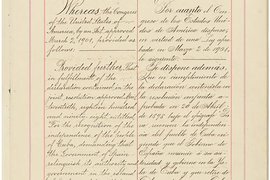 Whereas the Congress
of the United States of
America, by an Act approved
March 2, 1901, provided as
follows:
Provided further, That
in fulfillment of the
declaration contained in the
joint resolution approved April
twentieth, eighteen hundred
and ninety-eight, entitled
"For the recognition of the
independence of the people
of Cuba, demanding that
the Government of Spain
relinquish its authority and
government in the island
Por cuanto el Con-
greso de los Estados Uni-
dos de América dispuso,
en virtud de una Ley apro-
bada en Marzo 2 de 1901,
lo siguiente:
Se dispone además,
Que en cumplimiento de
la declaración contenida en
la resolución conjunta a-
probada en 20 de Abril
de 1898
del pueblo de Cuba
que el Gobierno de
España
y gobierno en la Isla
de Cuba, y que retire